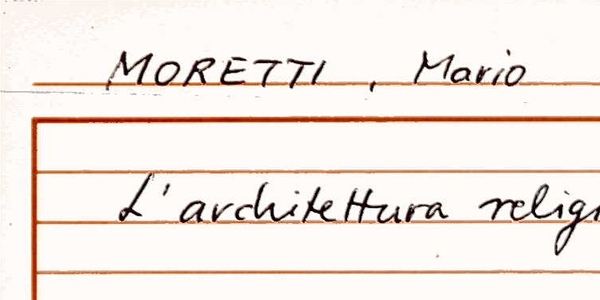 MORETTI, Mario
L'architettura relig